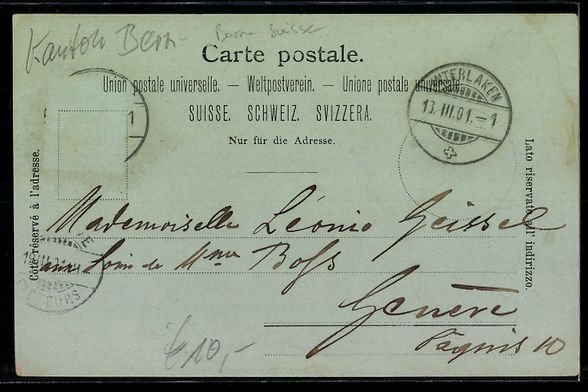 Kanton Bern
Berne Suisse
Carte postale.
Union postale universelle. — Weltpostverein. — Unione postale universale
SUISSE. SCHWEIZ. SVIZZERA.
Nur für die Adresse.
INTERLAKEN
13.III.01.-1
1
Côté réservé à l'adresse.
Lato riservato all'indirizzo.
Mademoiselle Léonie Geissel
aux soins de Mme Boss
Genève
Pâquis 10
€10,-